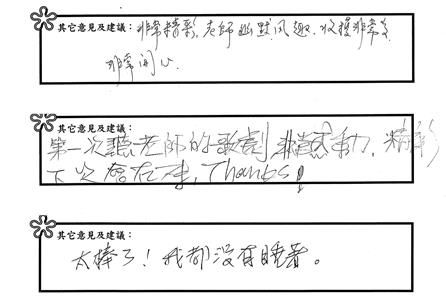 其它意見及建議：非常精彩,老師幽默风趣,收穫非常多
非常開心
其它意見及建議：
第一次聽老師的歌劇 非常感動,精彩
下次會在來, Thanks!
其它意見及建議：
太棒了！我都没有睡著。